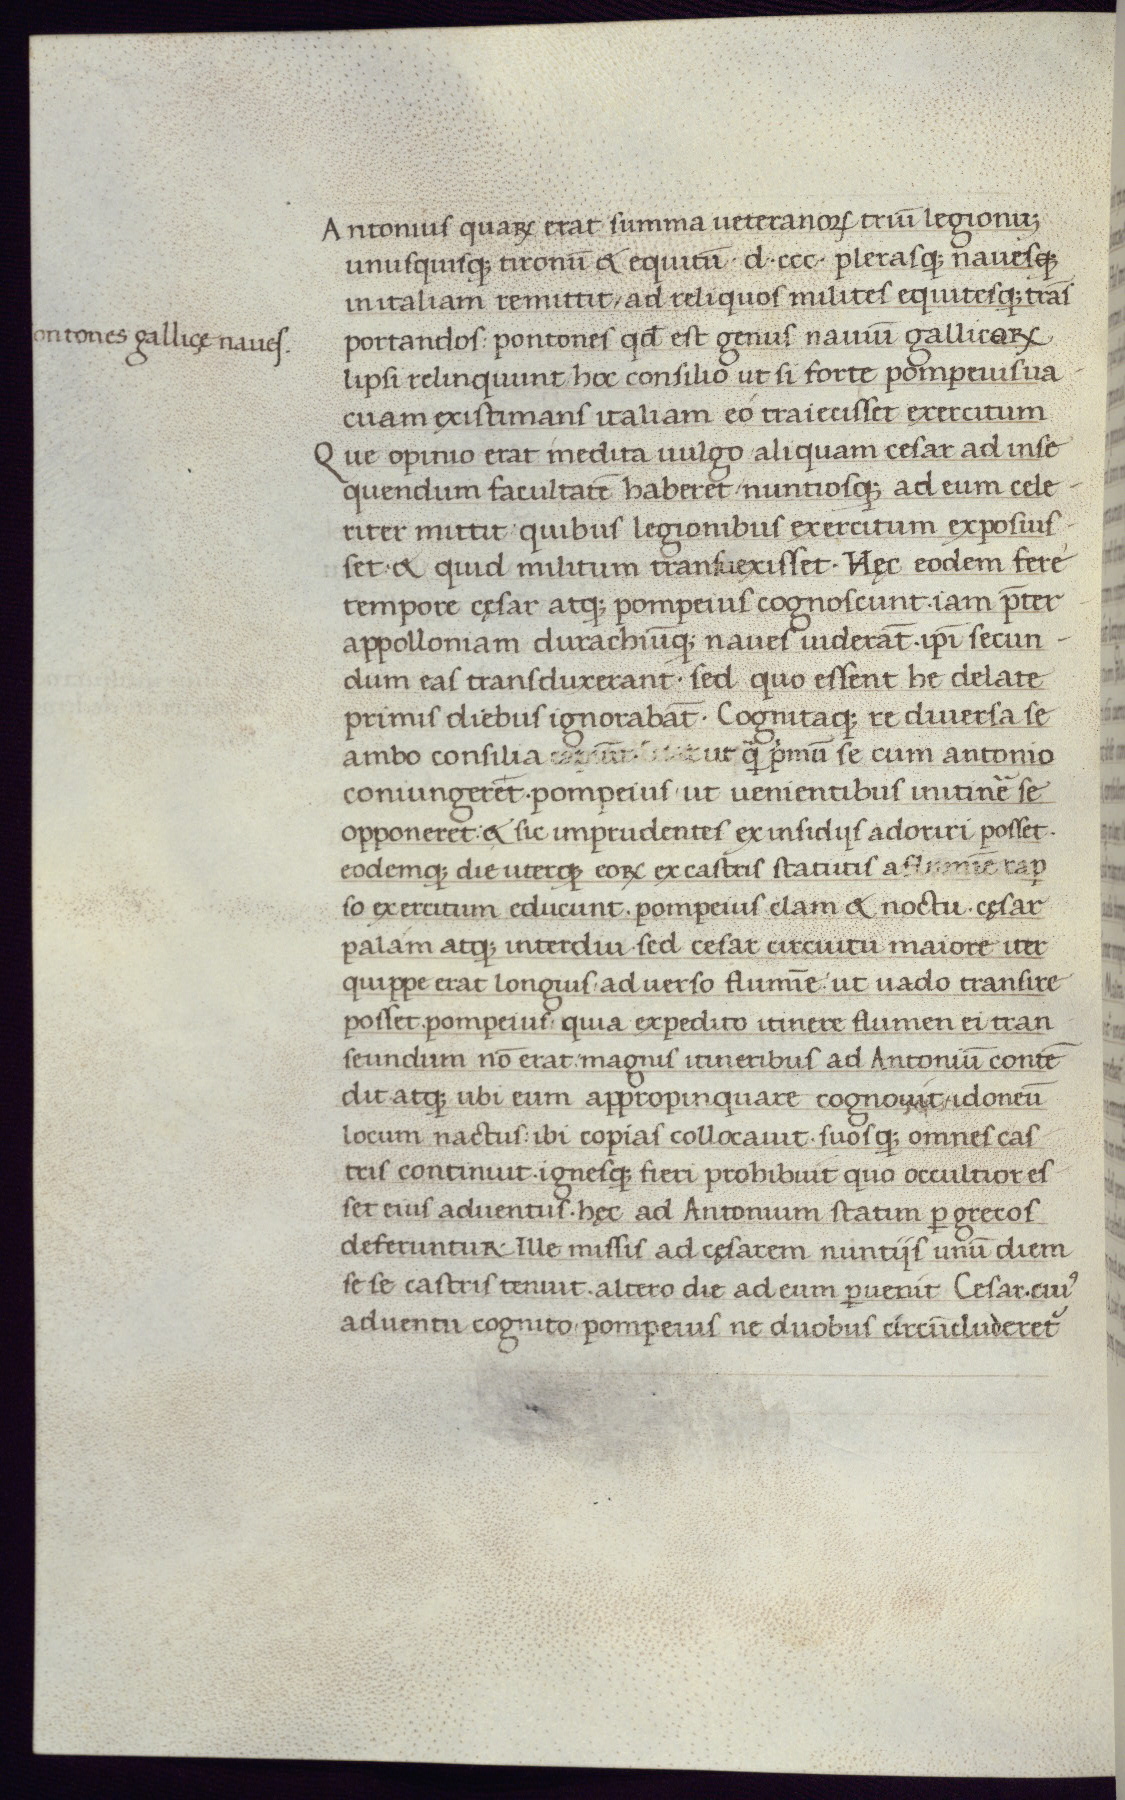 Antonius quaꝝ erat summa ueteranoꝝ triū legionuꝫ
unusquisqꝫ tironū & equitū · d · ccc · plerasqꝫ nauesqꝫ
initaliam remittit / ad reliquos milites equitesqꝫ trās
ontones gallicę naues.
portandos: pontones qđ est genus nauiū gallicaꝝ
lipsi relinquunt hoc consilio ut si forte pompeius ua-
cuam existimans italiam eo traiecisset exercitum
Que opinio erat inedita uulgo / aliquam cesar ad inse
quendum facultatē haberet / nuntiosqꝫ ad eum cele-
riter mittit quibus legionibus exercitum exposius-
set · & quid militum transuexisset · Hęc eodem fere
tempore cęsar atqꝫ pompeius cognoscunt · iam p̄ter
appolloniam durachiūqꝫ naues uiderāt · ip̄i secun-
dum eas transduxerant · sed quo essent he delate
primis diebus ignorabāt · Cognitaqꝫ re diuersa se
ambo consilia ut se cum antonio
coniungerēt · pompeius / ut uenientibus initinē se
opponeret: & sic imprudentes ex insidijs adoriri posset ·
eodemqꝫ die uterqꝫ eoꝝ ex castris statiuis a flumīe rap
so exercitum educunt · pompeius clam & noctu · cęsar
palam atqꝫ interdiu · sed cesar circuitu maiore iter
quippe erat longius / aduerso flumīe · ut uado transire
posset · pompeius / quia expedito itinere flumen ei tran
seundum nō erat: magnis itineribus ad Antoniū contē
dit atqꝫ ubi eum appropinquare cognouit / idoneū
locum nactus: ibi copias collocauit · suosqꝫ omnes cas
tris continuit · ignesqꝫ fieri prohibuit quo occultior es
set eius aduentus · hęc ad Antonium statim ꝑ grecos
deferuntur Ille missis ad cęsarem nuntijs unū diem
se se castris tenuit · altero die ad eum ꝑuenit Cesar · cuiꝰ
aduentu cognito / pompeius ne duobus circūcluderet᷑